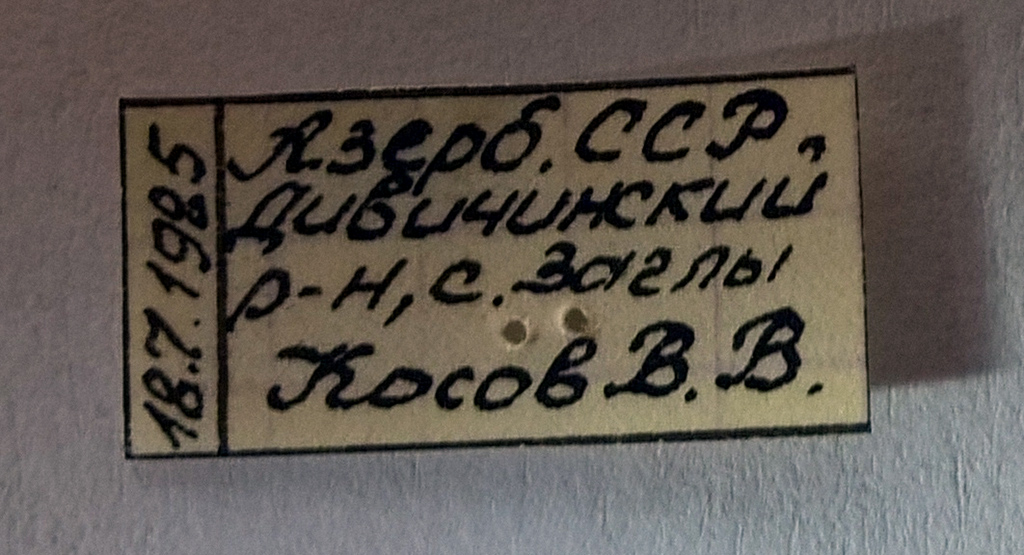 18.7.1985
Азерб. ССР,
Дивичинский
р-н, с. Заглы
Косов В. В.